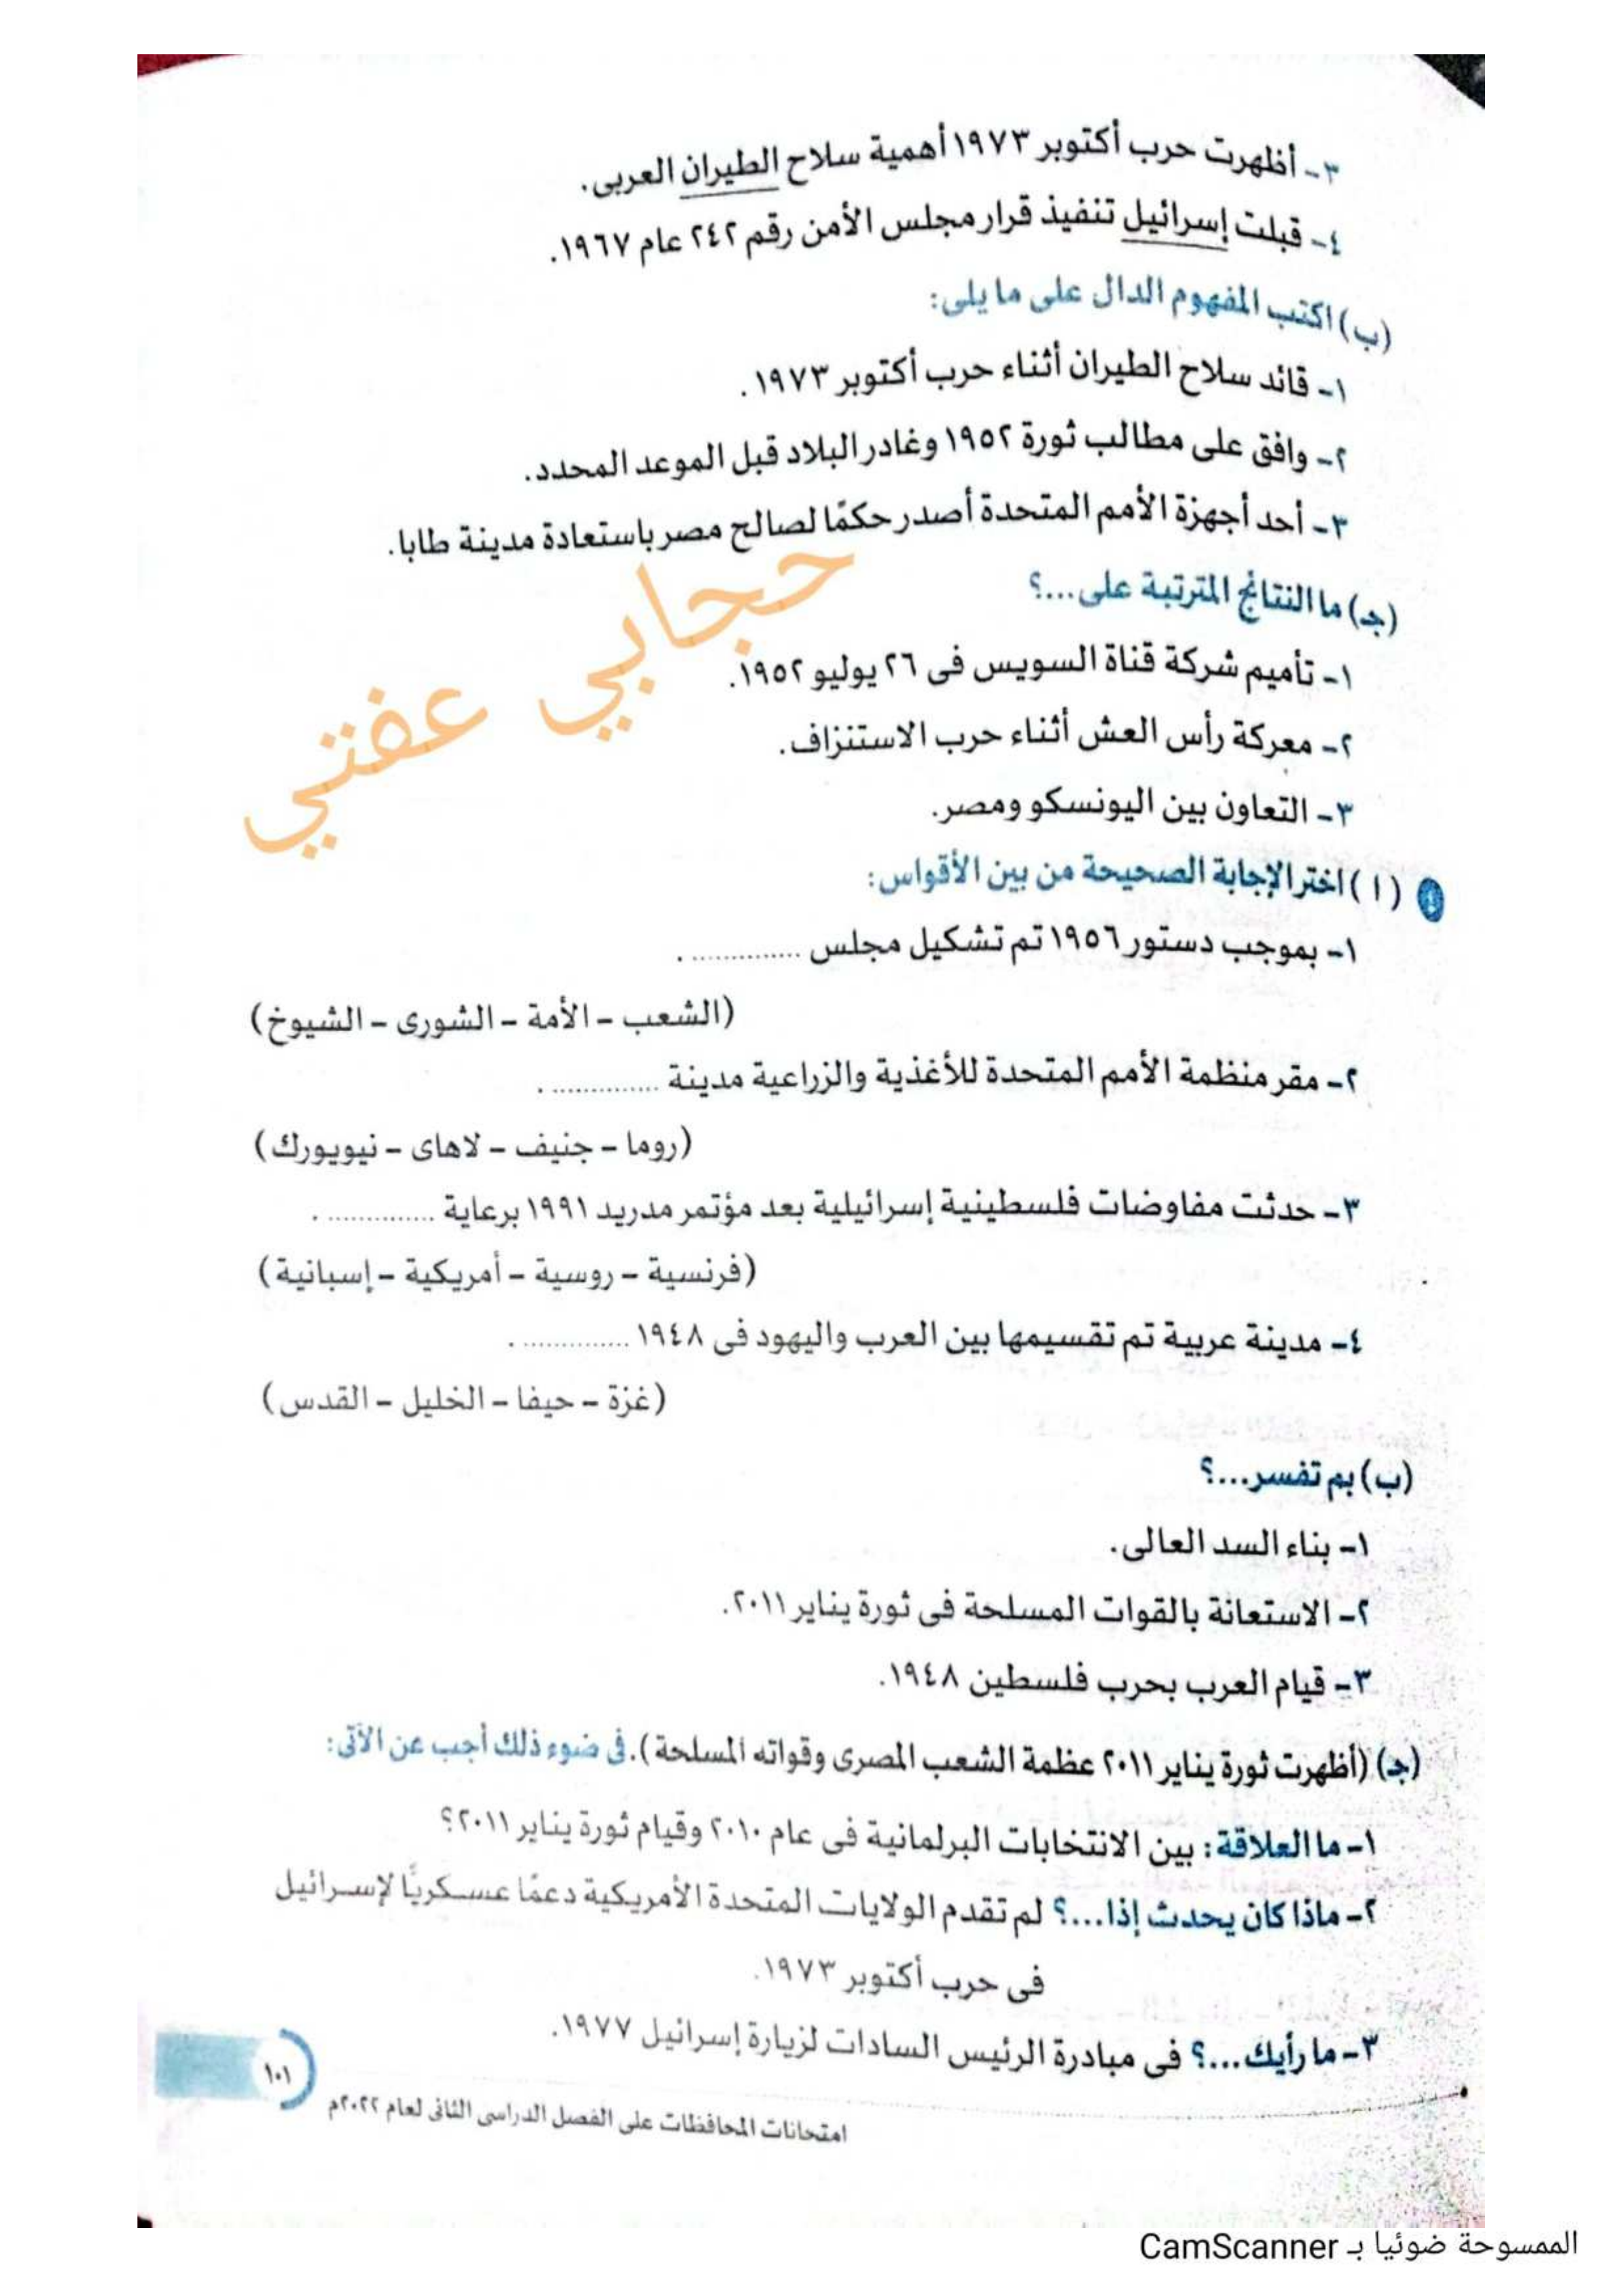 ٣- أظهرت حرب أكتوبر ١٩٧٣ أهمية سلاح الطيران العربى.
٤- قبلت إسرائيل تنفيذ قرار مجلس الأمن رقم ٢٤٢ عام ١٩٦٧.
(ب) اكتب المفهوم الدال على ما يلى:
١- قائد سلاح الطيران أثناء حرب أكتوبر ١٩٧٣.
٢- وافق على مطالب ثورة ١٩٥٢ وغادر البلاد قبل الموعد المحدد.
٣- أحد أجهزة الأمم المتحدة أصدر حكمًا لصالح مصر باستعادة مدينة طابا.
(جـ) ما النتائج المترتبة على...؟
١- تأميم شركة قناة السويس فى ٢٦ يوليو ١٩٥٢.
٢- معركة رأس العش أثناء حرب الاستنزاف.
٣- التعاون بين اليونسكو ومصر.
حجابي عفتي
٤ (١) اختر الإجابة الصحيحة من بين الأقواس:
١- بموجب دستور ١٩٥٦ تم تشكيل مجلس .............. .
(الشعب - الأمة - الشورى - الشيوخ)
٢- مقر منظمة الأمم المتحدة للأغذية والزراعية مدينة .............. .
(روما - جنيف - لاهاى - نيويورك)
٣- حدثت مفاوضات فلسطينية إسرائيلية بعد مؤتمر مدريد ١٩٩١ برعاية .............. .
(فرنسية - روسية - أمريكية - إسبانية)
٤- مدينة عربية تم تقسيمها بين العرب واليهود فى ١٩٤٨ .............. .
(غزة - حيفا - الخليل - القدس)
(ب) بم تفسر...؟
١- بناء السد العالى.
٢- الاستعانة بالقوات المسلحة فى ثورة يناير ٢٠١١.
٣- قيام العرب بحرب فلسطين ١٩٤٨.
(جـ) (أظهرت ثورة يناير ٢٠١١ عظمة الشعب المصرى وقواته المسلحة). فى ضوء ذلك أجب عن الآتى:
١- ما العلاقة: بين الانتخابات البرلمانية فى عام ٢٠١٠ وقيام ثورة يناير ٢٠١١؟
٢- ماذا كان يحدث إذا...؟ لم تقدم الولايات المتحدة الأمريكية دعمًا عسكريًا لإسرائيل
فى حرب أكتوبر ١٩٧٣.
٣- ما رأيك...؟ فى مبادرة الرئيس السادات لزيارة إسرائيل ١٩٧٧.
١٠١
امتحانات المحافظات على الفصل الدراسى الثانى لعام ٢٠٢٢م
الممسوحة ضوئيا بـ CamScanner